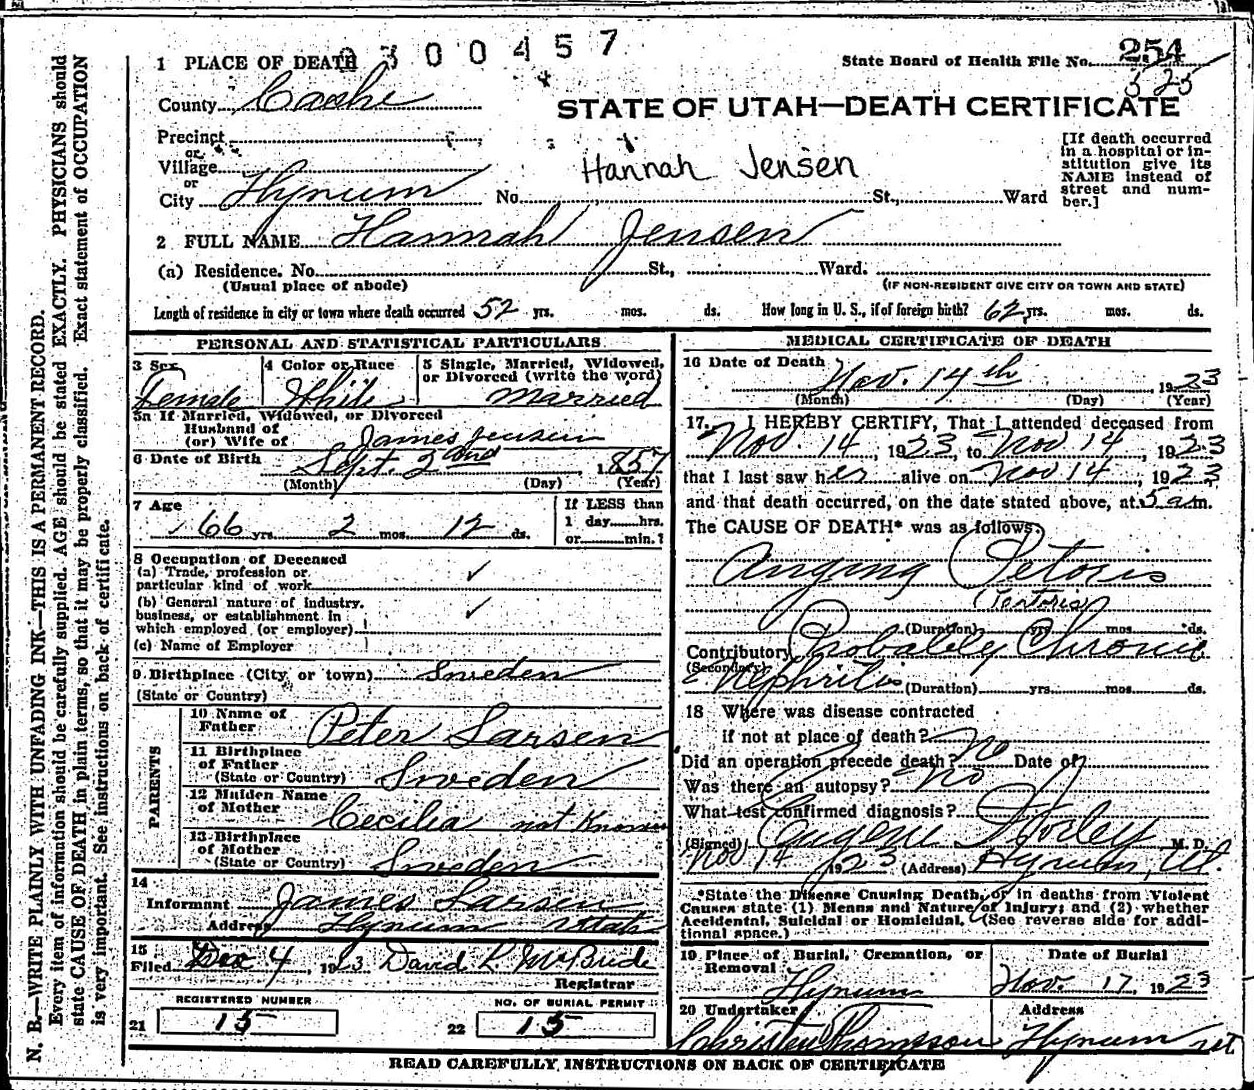 N. B.—WRITE PLAINLY WITH UNFADING INK—THIS IS A PERMANENT RECORD.
Every item of information should be carefully supplied. AGE should be stated EXACTLY. PHYSICIANS should
state CAUSE OF DEATH in plain terms, so that it may be properly classified. Exact statement of OCCUPATION
is very important. See instructions on back of certificate.
1 PLACE OF DEATH 2300457
State Board of Health File No. 254
325
County Cashe
STATE OF UTAH—DEATH CERTIFICATE
Precinct
or
Village
or
City Hyrum No. St., Ward
Hannah Jensen
[If death occurred
in a hospital or in-
stitution give its
NAME instead of
street and num-
ber.]
2 FULL NAME Hannah Jensen
(a) Residence. No. St., Ward.
(Usual place of abode) (IF NON-RESIDENT GIVE CITY OR TOWN AND STATE)
Length of residence in city or town where death occurred 52 yrs. mos. ds. How long in U. S., if of foreign birth? 62 yrs. mos. ds.
PERSONAL AND STATISTICAL PARTICULARS
3 Sex Female
4 Color or Race White
5 Single, Married, Widowed,
or Divorced (write the word)
Married
5a If Married, Widowed, or Divorced
Husband of
(or) Wife of James Jensen
6 Date of Birth Sept. 2nd, 1857
(Month) (Day) (Year)
7 Age
66 yrs. 2 mos. 12 ds.
If LESS than
1 day hrs.
or min.?
8 Occupation of Deceased
(a) Trade, profession or
particular kind of work ✓
(b) General nature of industry,
business, or establishment in
which employed (or employer) ✓
(c) Name of Employer
9 Birthplace (City or town) Sweden
(State or Country)
PARENTS
10 Name of
Father Peter Larsen
11 Birthplace
of Father
(State or Country) Sweden
12 Maiden Name
of Mother Cecilia not Known
13 Birthplace
of Mother
(State or Country) Sweden
14
Informant James Larsen
Address Hyrum Utah
15
Filed Dec 4, 1923 David L McBride
Registrar
REGISTERED NUMBER NO. OF BURIAL PERMIT
21 15 22 15
MEDICAL CERTIFICATE OF DEATH
16 Date of Death Nov. 14th 1923
(Month) (Day) (Year)
17. I HEREBY CERTIFY, That I attended deceased from
Nov 14, 1923, to Nov 14, 1923
that I last saw her alive on Nov 14, 1923
and that death occurred, on the date stated above, at 5 am.
The CAUSE OF DEATH* was as follows:
Angina Petoris
(Duration) yrs. mos. ds.
Contributory Probabley Chronic
(Secondary) Nephritis (Duration) yrs. mos. ds.
18 Where was disease contracted
if not at place of death?
Did an operation precede death? No Date of
Was there an autopsy? No
What test confirmed diagnosis?
(Signed) Eugene Worley M. D.
Nov 14 1923 (Address) Hyrum, Ut.
*State the Disease Causing Death, or in deaths from Violent
Causes state (1) Means and Nature of Injury; and (2) whether
Accidental, Suicidal or Homicidal. (See reverse side for addi-
tional space.)
19 Place of Burial, Cremation, or
Removal
Hyrum
Date of Burial
Nov. 17, 1923
20 Undertaker
Christen Thompson
Address
Hyrum Ut
READ CAREFULLY INSTRUCTIONS ON BACK OF CERTIFICATE